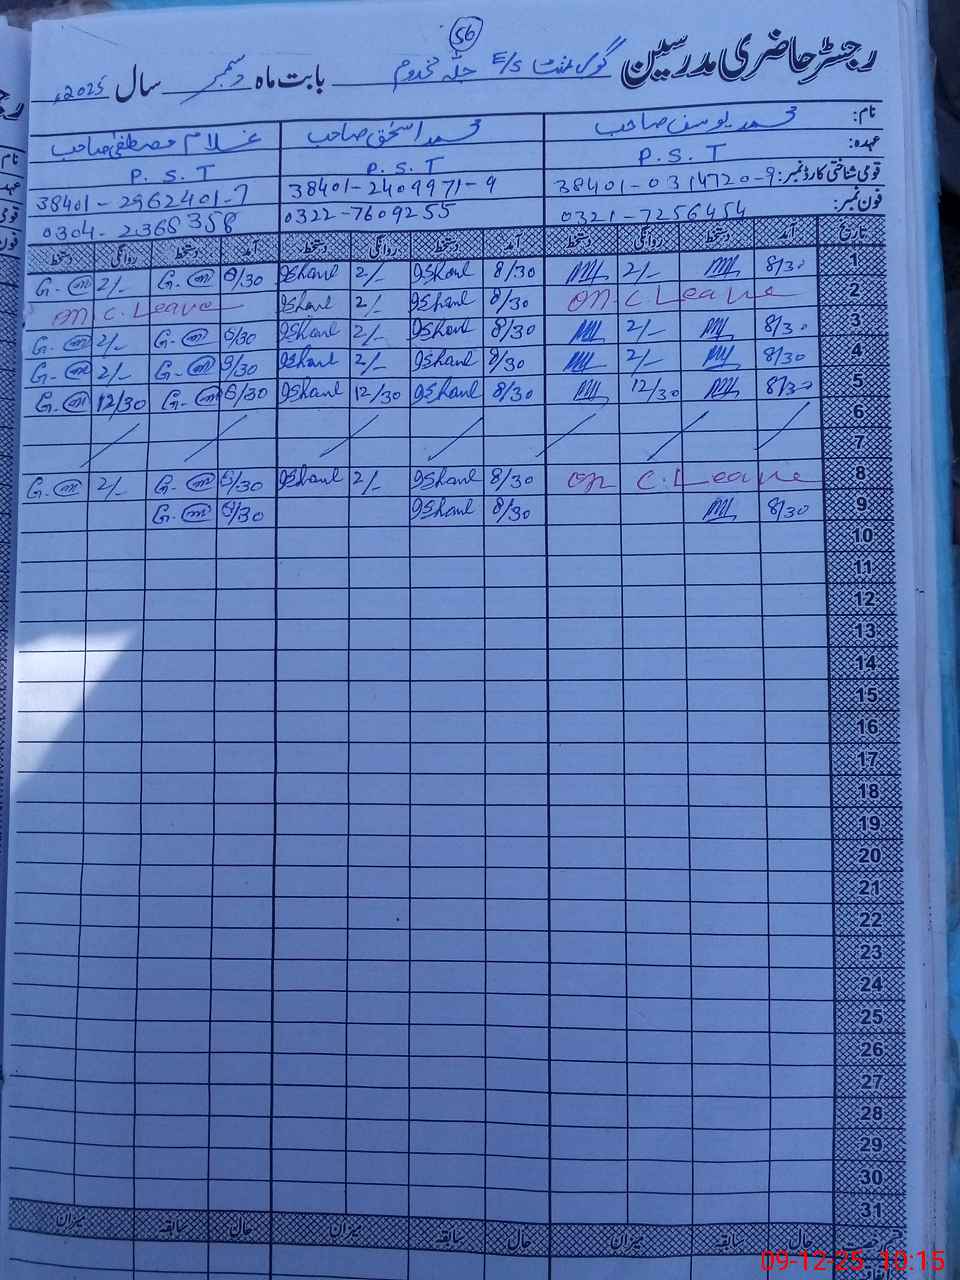 56
رجسٹر حاضری مدرسین گورنمنٹ E/S جلہ مخدوم بابت ماہ دسمبر سال 2025ء
نام: محمد یوسف صاحب محمد اسحٰق صاحب غلام مصطفیٰ صاحب
عہدہ: P.S.T P.S.T P.S.T
قومی شناختی کارڈ نمبر: 38401-0314720-9 38401-2409971-9 38401-2962401-7
فون نمبر: 0321-7256454 0322-7609255 0304-2368358
تاریخ آمد دستخط روانگی دستخط آمد دستخط روانگی دستخط آمد دستخط روانگی دستخط
1 8/30 2/- 8/30 9Shaul 2/- 9Shaul 8/30 G.m 2/- G.m
2 on C. Leave 8/30 9Shaul 2/- 9Shaul on C. Leave
3 8/30 2/- 8/30 9Shaul 2/- 9Shaul 8/30 G.m 2/- G.m
4 8/30 2/- 8/30 9Shaul 2/- 9Shaul 8/30 G.m 2/- G.m
5 8/30 12/30 8/30 9Shaul 12/30 9Shaul 8/30 G.m 12/30 G.m
6
7
8 on C. Leave 8/30 9Shaul 2/- 9Shaul 8/30 G.m 2/- G.m
9 8/30 8/30 9Shaul 8/30 G.m
10
11
12
13
14
15
16
17
18
19
20
21
22
23
24
25
26
27
28
29
30
31
حال سابقہ میزان حال سابقہ میزان حال سابقہ میزان
09-12-25 10:15